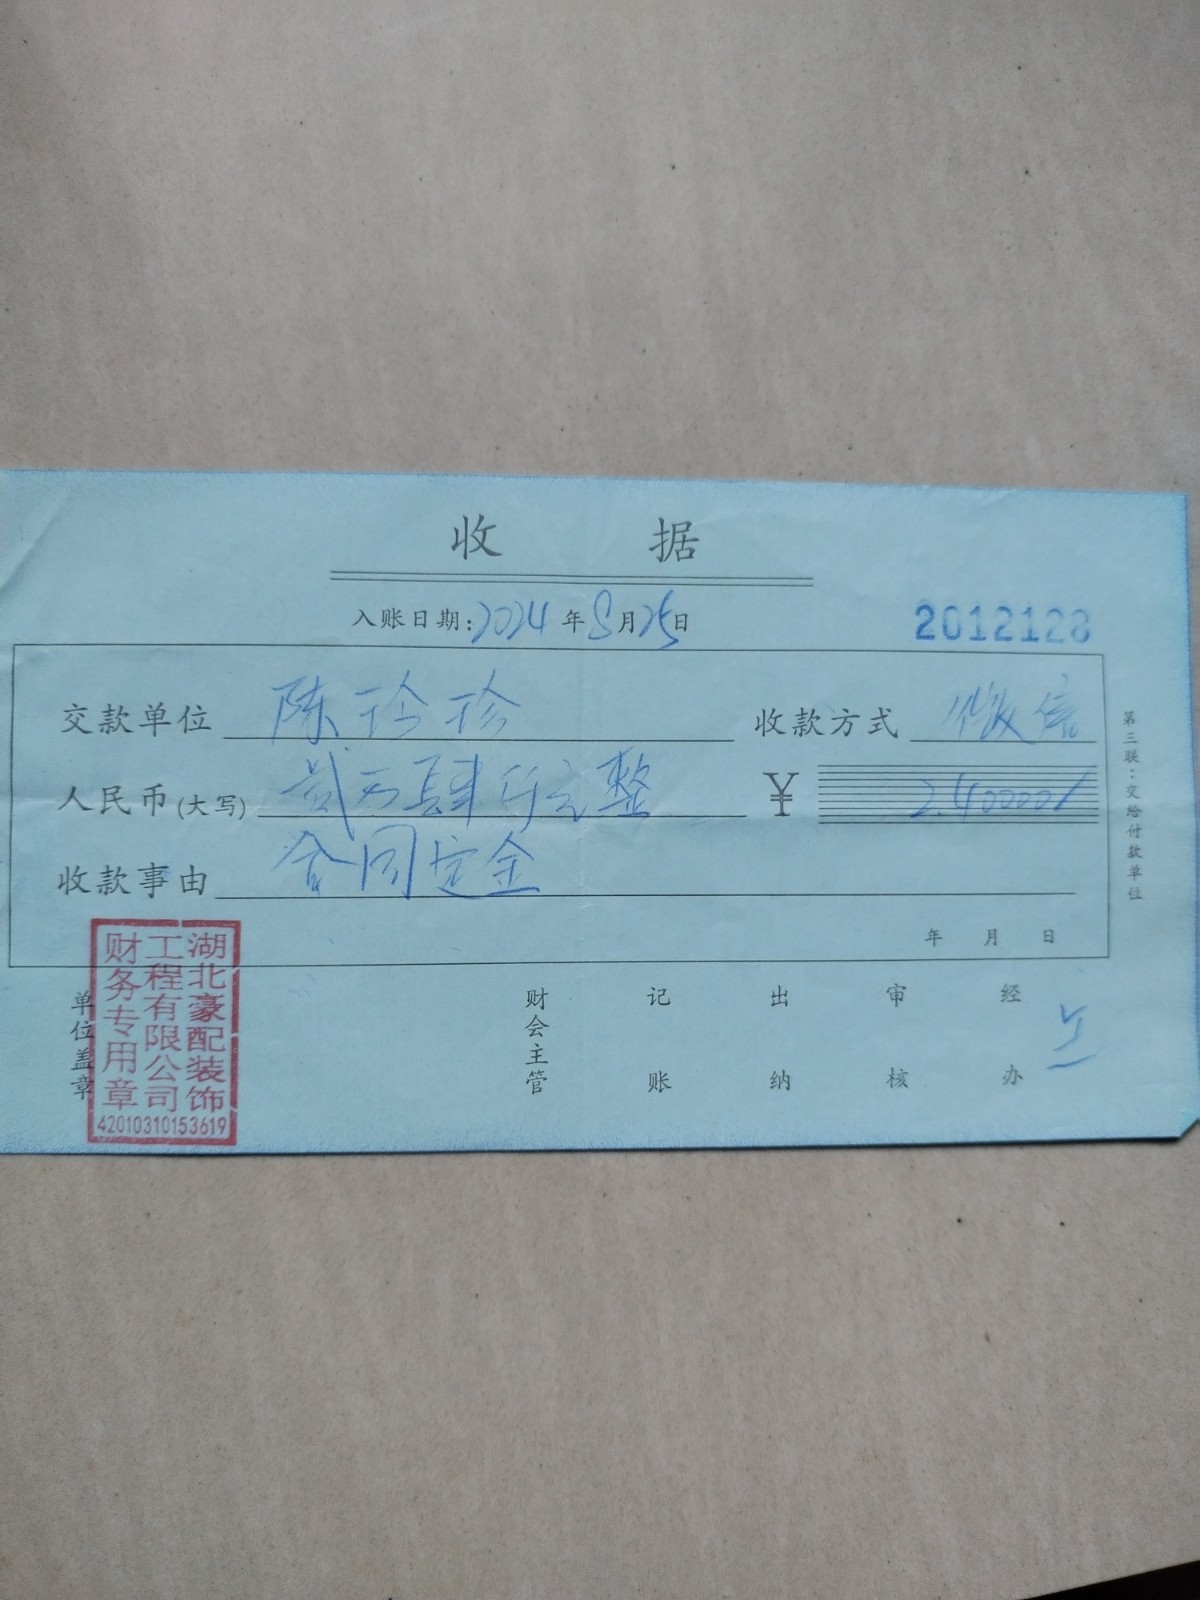 收 据
入账日期:2024年8月25日
2012128
交款单位 陈玲珍 收款方式 微信
人民币(大写) 贰万肆仟元整 ¥
收款事由 合同定金
年 月 日
第三联:交给付款单位
单位盖章 财会主管 记账 出纳 审核 经办
湖北豪配装饰
工程有限公司
财务专用章
42010310153619